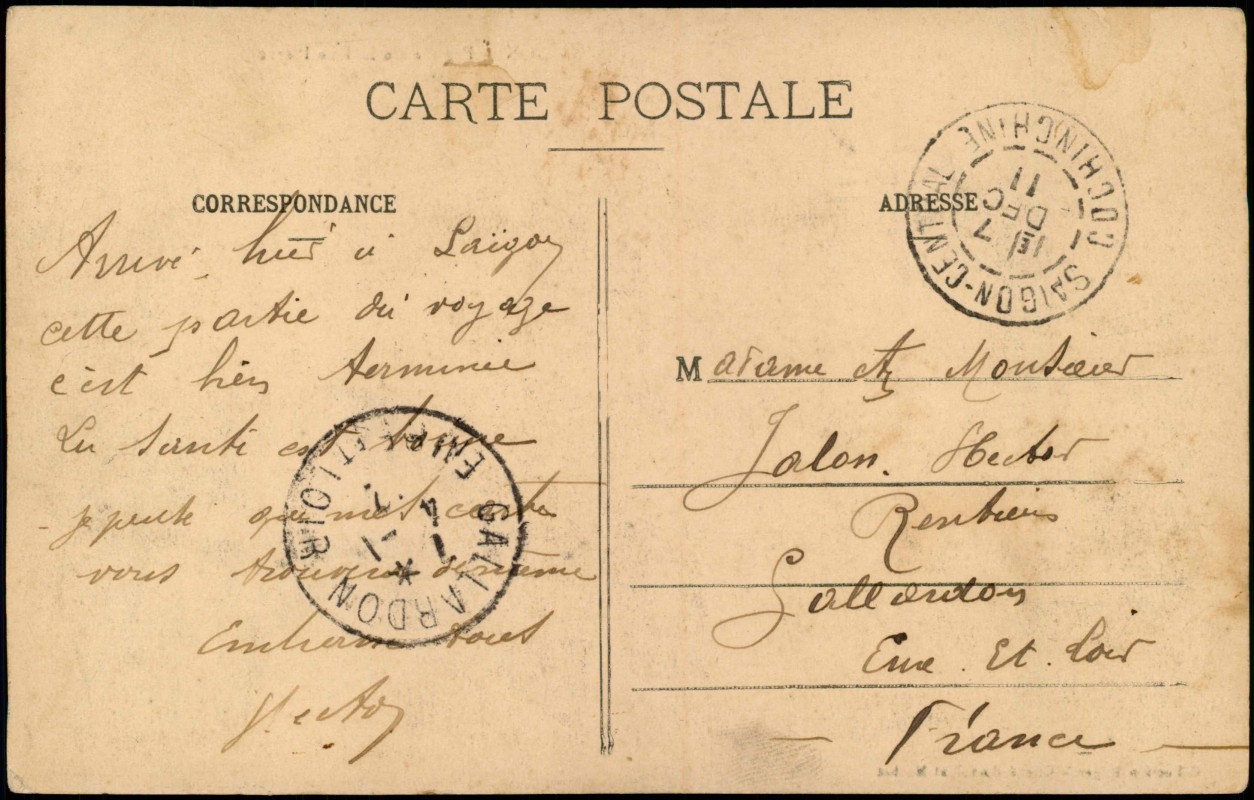 CARTE POSTALE
CORRESPONDANCE
ADRESSE
SAIGON-CENTRAL
COCHINCHINE
7
DEC
11
Arrivé hier à Saïgon
cette partie du voyage
c'est bien terminée
La santé est bonne
je que cette
vous trouvera de même
Embrasse tous
Hector
GALLARDON
EURE ET LOIR
Madame et Monsieur
Jalon. Hector
Rentiers
Gallardon
Eure. Et. Loir
France